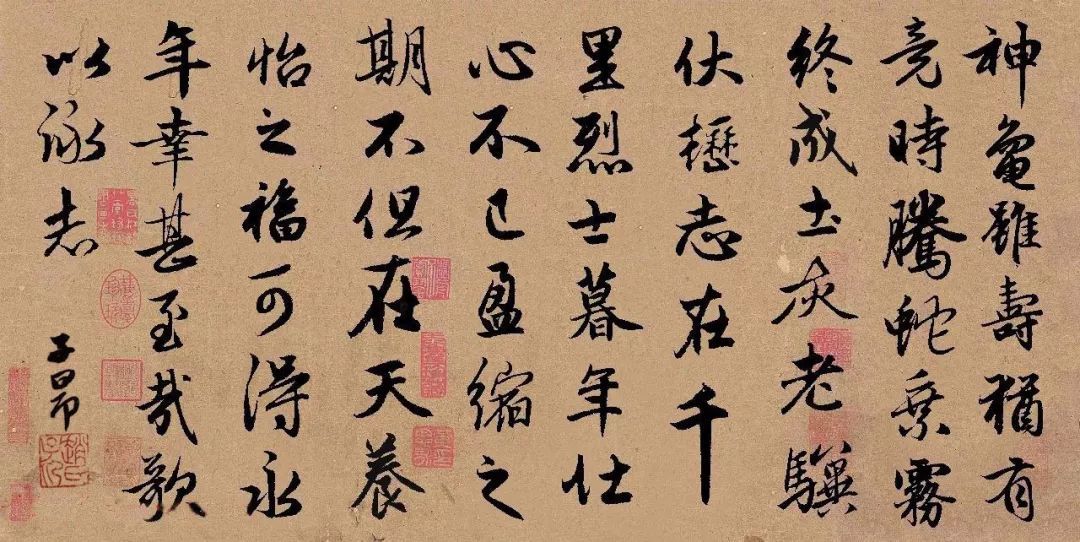 神龜雖壽猶有
竟時騰蛇乗霧
終成土灰老驥
伏櫪志在千
里烈士暮年壮
心不已盈縮之
期不但在天養
怡之福可得永
年幸甚至哉歌
以詠志
子昂
趙氏子昂